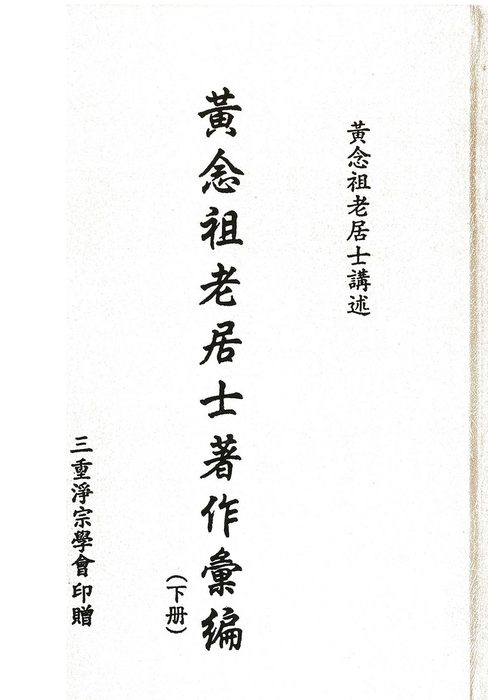 黃念祖老居士講述
黃念祖老居士著作彙編
(下册)
三重淨宗學會印贈